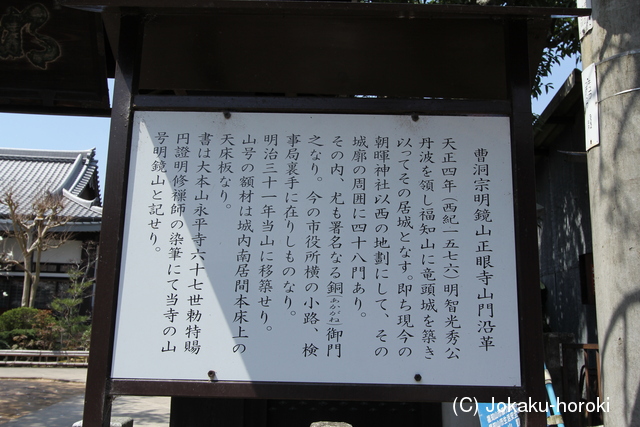 曹洞宗明鏡山正眼寺山門沿革
天正四年(西紀一五七六)明智光秀公
丹波を領し福知山に竜頭城を築き
以ってその居城となす。即ち現今の
朝暉神社以西の地劃にして、その
城廓の周囲に四十八門あり。
その内、尤も署名なる銅(あかがね)御門
之なり。今の市役所横の小路、検
事局裏手に在りしものなり。
明治三十一年当山に移築せり。
山号の額材は城内南居間本床上の
天床板なり。
書は大本山永平寺六十七世勅特賜
円證明修禅師の染筆にて当寺の山
号明鏡山と記せり。
(C) Jokaku-horoki